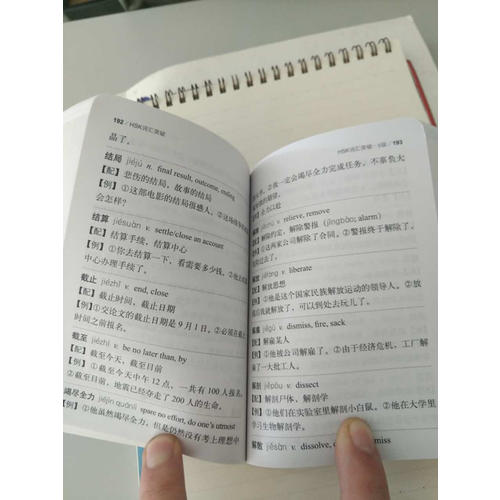 192 / HSK词汇突破
晶了。
结局 jiéjú n. final result, outcome, ending
【配】悲伤的结局，故事的结局
【例】①这部电影的结局很感人。②这场
会怎样？
结算 jiésuàn v. settle/close an account
【配】结算手续，结算中心
【例】①你去结算一下，看需要多少钱。②
中心办理手续了。
截止 jiézhǐ v. end, close
【配】截止时间，截止日期
【例】①交论文的截止日期是9月1日。②必须在截止
时间之前报名。
截至 jiézhì v. be no later than, by
【配】截至今天，截至目前
【例】①截至今天中午12点，一共有100人报名。
②截至目前，地震已经夺走了200人的生命。
竭尽全力 jiéjìn quánlì spare no effort, do one's utmost
【例】①他虽然竭尽全力，但是仍然没有考上理想中
HSK词汇突破·6级 / 193
②我一定会竭尽全力完成任务，不辜负大
全力以赴
v. relieve, remove
解除约定，解除警报（jǐngbào; alarm）
①这两家公司解除了合同。②警报终于解除了，
过去了。
jiěfàng v. liberate
【配】解放思想
【例】①他是这个国家民族解放运动的领导人。②放
我就解放了，可以到处去玩儿了。
解雇 jiěgù v. dismiss, fire, sack
【配】解雇某人
【例】①他被公司解雇了。②由于经济危机，工厂解
雇了一大批工人。
解剖 jiěpōu v. dissect
【配】解剖尸体，解剖学
【例】①他们在实验室里解剖小白鼠。②他在大学里
学习生物解剖学。
解散 jiěsàn v. dissolve, dismiss